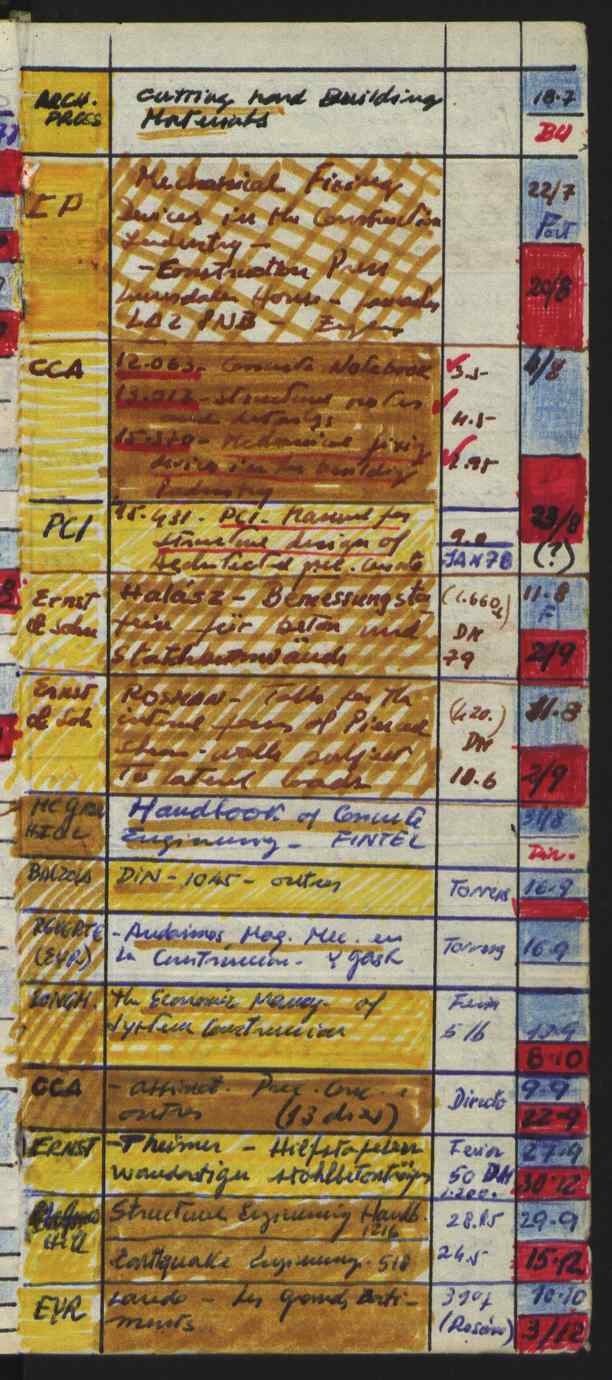 ARCH. PROCES
Cutting hand Building
Materials
18-7
BU
EP
Mechanical Fixing
Devices in the Construction
Industry -
- Construction Press
Lunesdale House -
LA2 8NB -
22/7
Port
20/8
CCA
12.063. Concrete Notebook
13.012 - structure notes
and detaings
15.370 - Mechanical fixing
devices in the building
Industry
3.5-
4.5-
2.95
4/8
PCI
15.431 - PCI. Manual for
structural design of
prec. concrete
9.0
JAN 78
23/8
(?)
Ernst
& Sohn
Halász - Bemessungsta
feln für beton und
Stahlbetonwände
(1.660)
DM
79
11-8
F
2/9
Ernst
& Soh
ROSMAN - Tables for the
internal forces of Pierced
shear-walls subject
to lateral loads
(420.)
DM
18.6
31-8
2/9
MC GRAW
HILL
Handbook of Concrete
Engineering - FINTEL
31/8
Dir.
DIN - 1045 - outres
Torrens
16-9
REVERTE
(EYR)
- Andaimos Maq. Mec. en
la Construccion - y gask
Torrens
16-9
LONGM.
the Economic Manag. of
System Construccion
Feria
5 lb
8-10
CCA
Prec. Conc.
outres (13 dises)
Directo
9-9
22-9
ERNST
- Theimer - Hilfstafeln
wandartiger stahlbetonträger
Feria
50 DM
1.200.
27-9
30-12
Hill
Structural Engineering Handb.
1216
28.85
29-9
Earthquake Engineering. 518
24.5
15-12
EYR
Les grands Bati-
ments.
(Rosario)
10-10
3/12